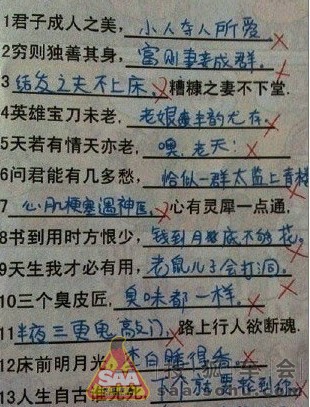 1君子成人之美,小人夺人所爱
2穷则独善其身,富则妻妾成群.
3结发之夫不上床,糟糠之妻不下堂.
4英雄宝刀未老,老娘丰韵尤存.
5天若有情天亦老,噢,老天!
6问君能有几多愁,恰似一群太监上青楼
7心肌梗塞遇神医,心有灵犀一点通,
8书到用时方恨少,钱到月底不够花.
9天生我才必有用,老鼠儿子会打洞.
10三个臭皮匠,臭味都一样.
11半夜三更鬼敲门,路上行人欲断魂.
12床前明月光,李白睡得香.
13人生自古谁无死,
搜狐